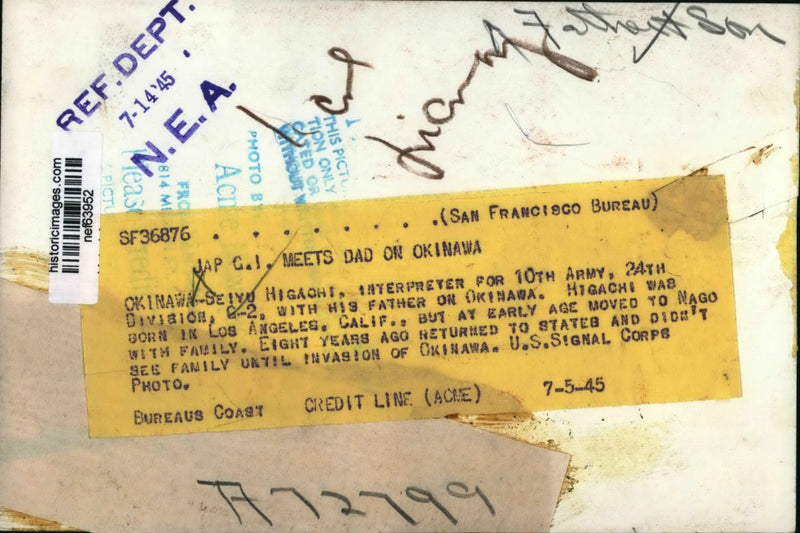 REF. DEPT.
7-14'45
N.E.A.
A Father & Son
Acme
THIS PICTU
TION ONLY
PHOTO BY
Acme
Please
historicimages.com
nef63952
SF36876 . . . . . . . .(SAN FRANCISCO BUREAU)
JAP G.I. MEETS DAD ON OKINAWA
OKINAWA--SEIYU HIGACHI, INTERPRETER FOR 10TH ARMY, 24TH
DIVISION, G-2, WITH HIS FATHER ON OKINAWA. HIGACHI WAS
BORN IN LOS ANGELES, CALIF., BUT AT EARLY AGE MOVED TO NAGO
WITH FAMILY. EIGHT YEARS AGO RETURNED TO STATES AND DIDN'T
SEE FAMILY UNTIL INVASION OF OKINAWA. U.S.SIGNAL CORPS
PHOTO.
BUREAUS COAST CREDIT LINE (ACME) 7-5-45
A72799